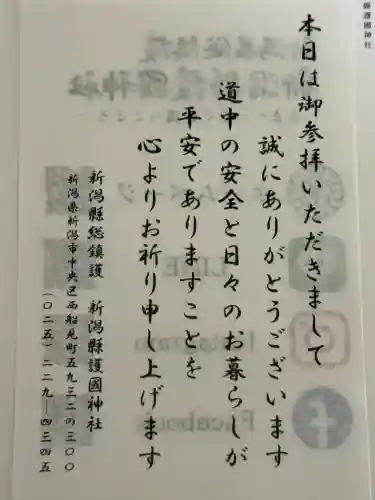 護國神社
本日は御参拝いただきまして
誠にありがとうございます
道中の安全と日々のお暮らしが
平安でありますことを
心よりお祈り申し上げます
新潟縣総鎮護　新潟縣護國神社
新潟県新潟市中央区西船見町五九三二の三〇〇
（〇二五）二二九-四三四五
LINE
Instagram
Facebook